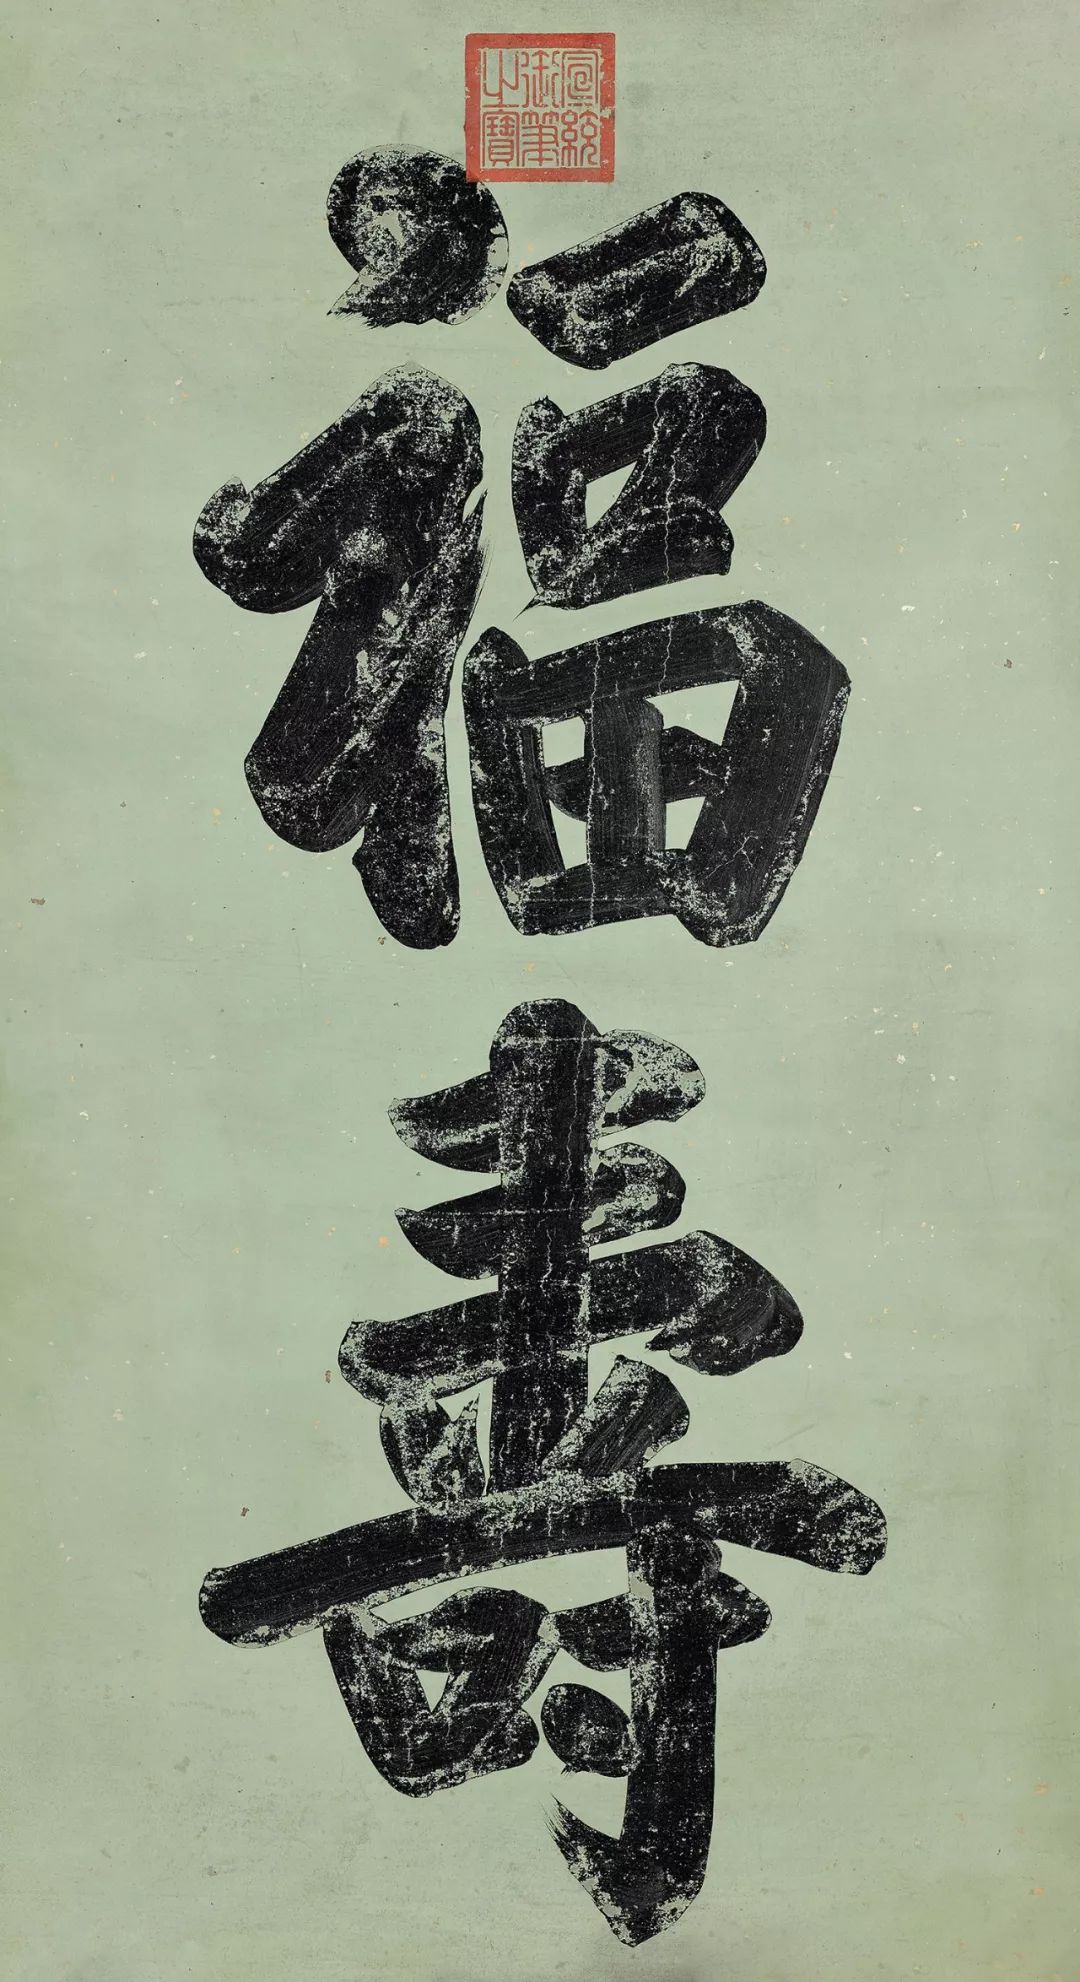 宣統御筆之寶
福壽